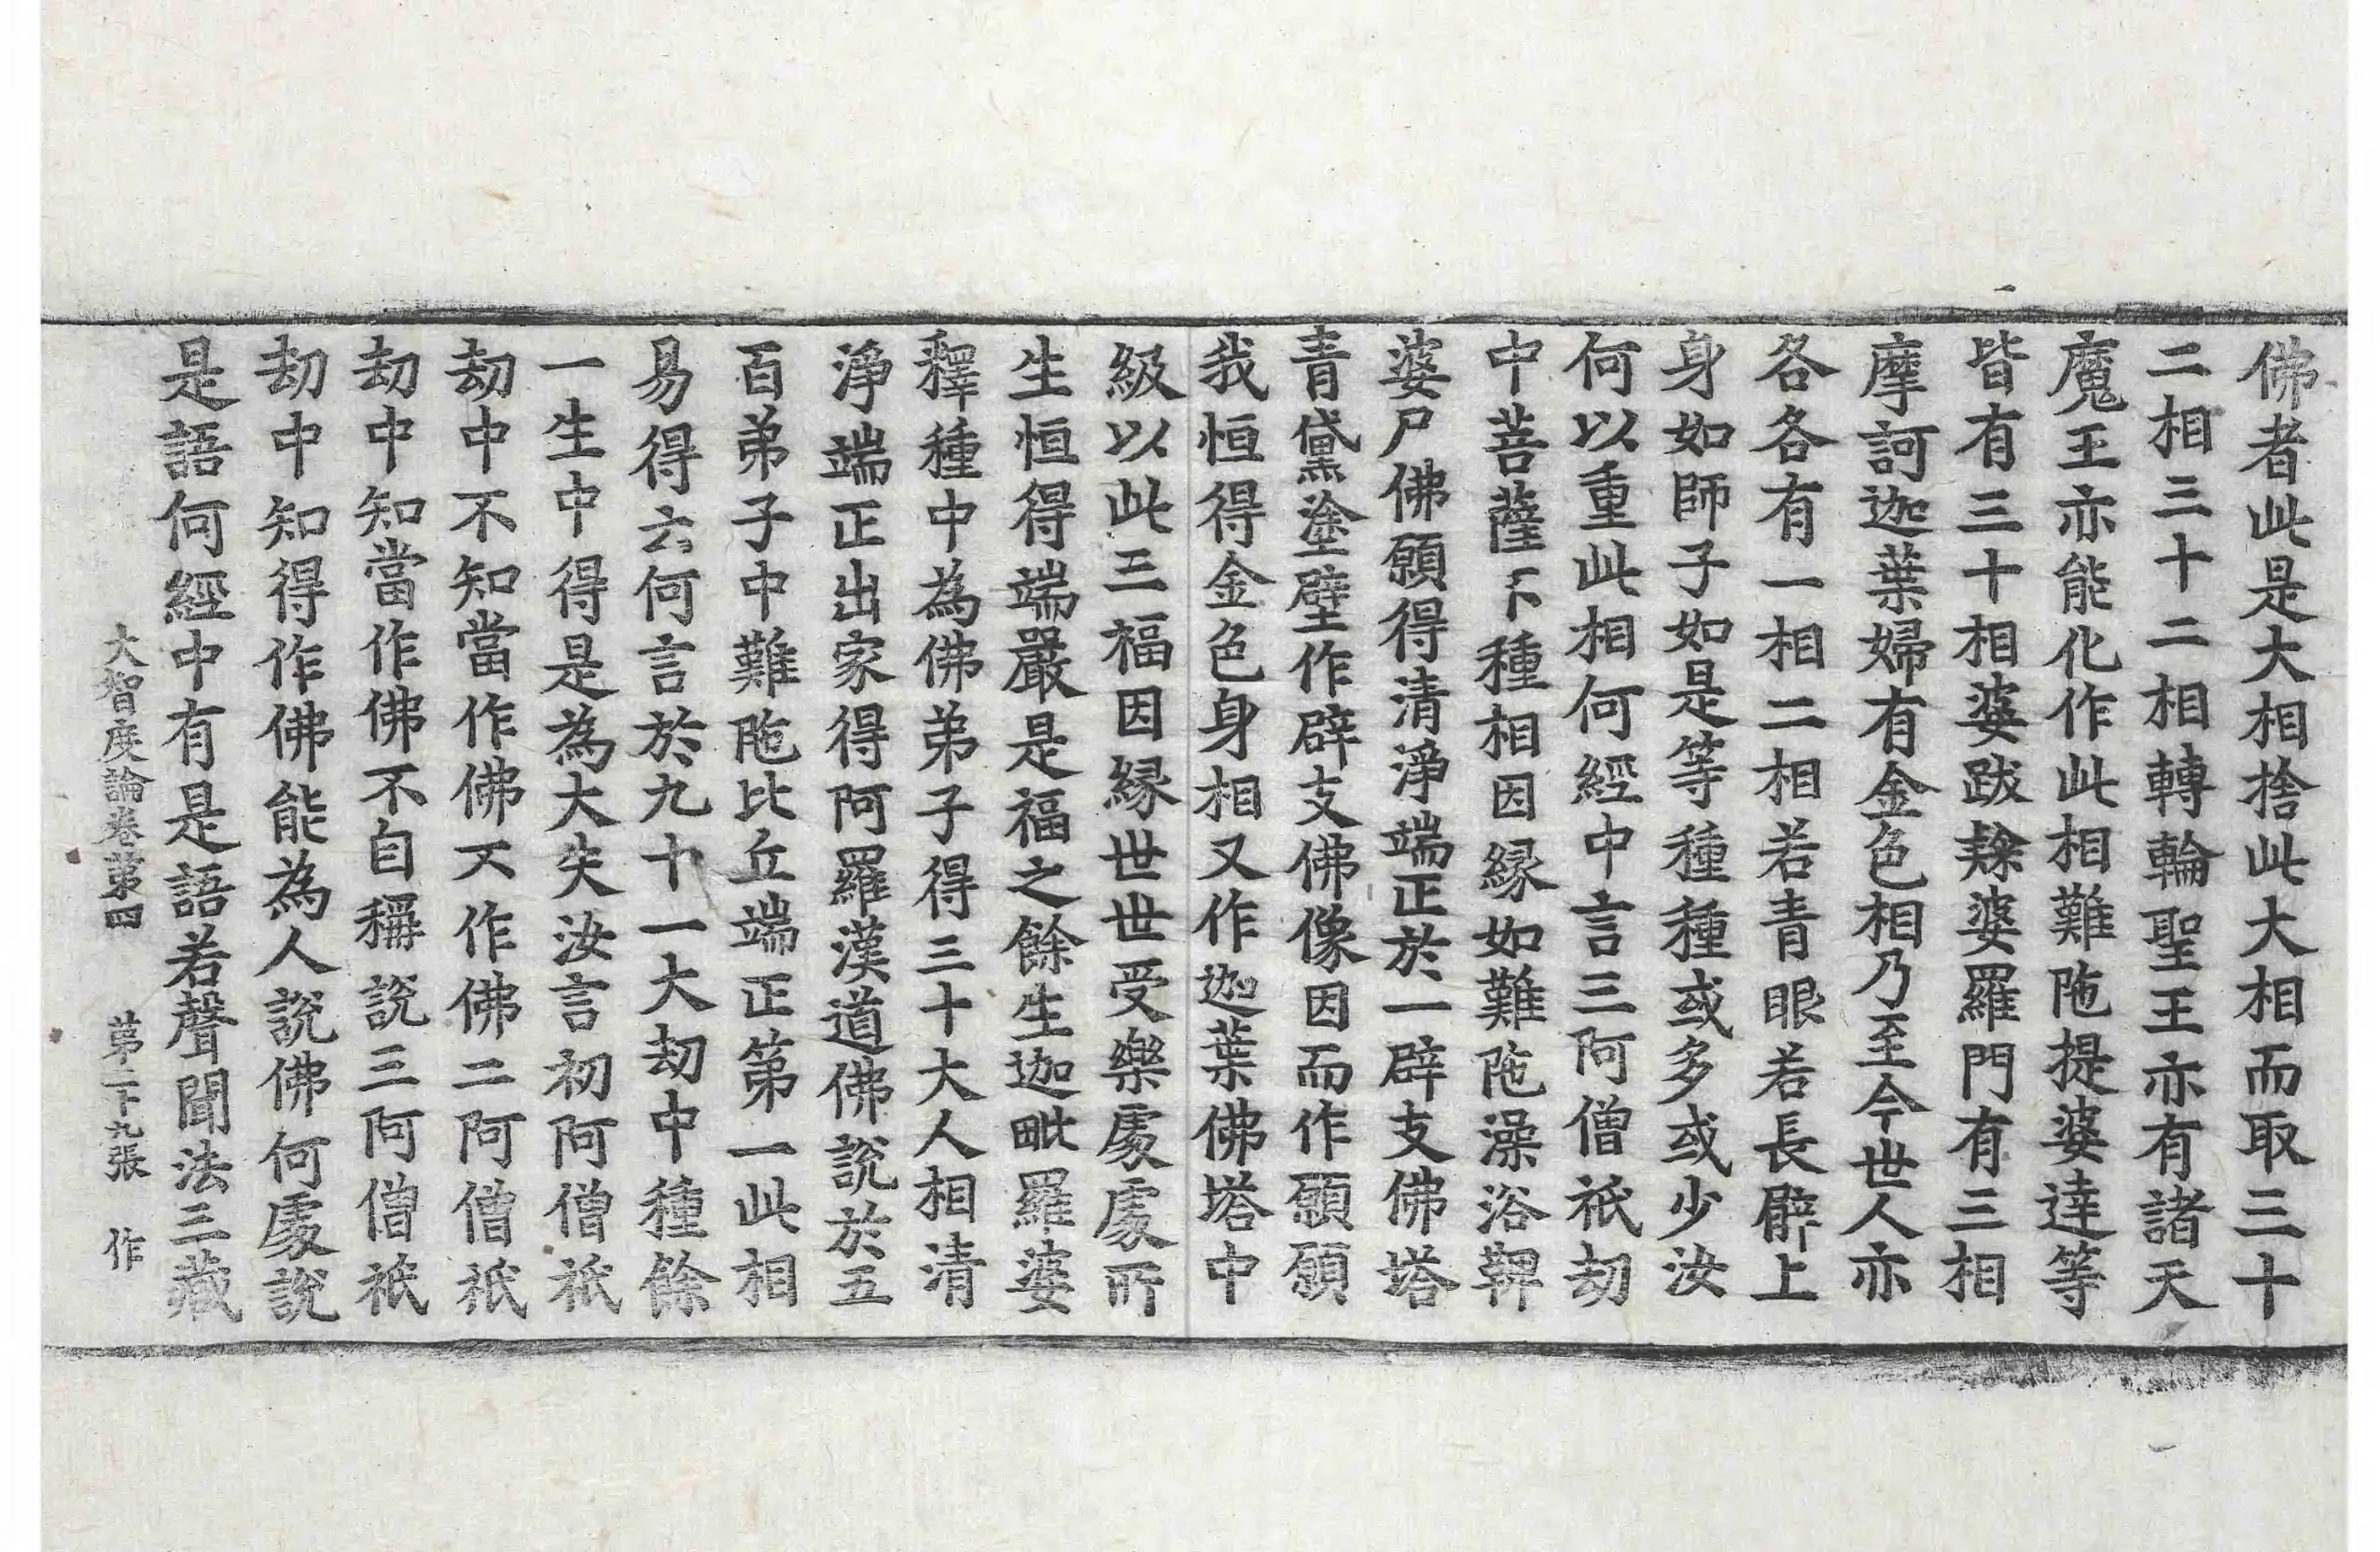 佛者此是大相捨此大相而取三十
二相三十二相轉輪聖王亦有諸天
魔王亦能化作此相難陁提婆達等
皆有三十相婆跋𨽻婆羅門有三相
摩訶迦葉婦有金色相乃至今世人亦
各各有一相二相若青眼若長臂上
身如師子如是等種種或多或少汝
何以重此相何經中言三阿僧祇劫
中菩薩不種相因緣如難陁澡浴鞞
婆尸佛願得清淨端正於一辟支佛塔
青黛塗壁作辟支佛像因而作願願
我恒得金色身相又作迦葉佛塔中
級以此三福因緣世世受樂處處所
生恒得端嚴是福之餘生迦毗羅婆
釋種中為佛弟子得三十大人相清
淨端正出家得阿羅漢道佛說於五
百弟子中難陁比丘端正第一此相
易得云何言於九十一大劫中種餘
一生中得是為大失汝言初阿僧祇
劫中不知當作佛不作佛二阿僧祇
劫中知當作佛不自稱說三阿僧祇
劫中知得作佛能為人說佛何處說
是語何經中有是語若聲聞法三藏
大智度論卷第四 第二十九張 作